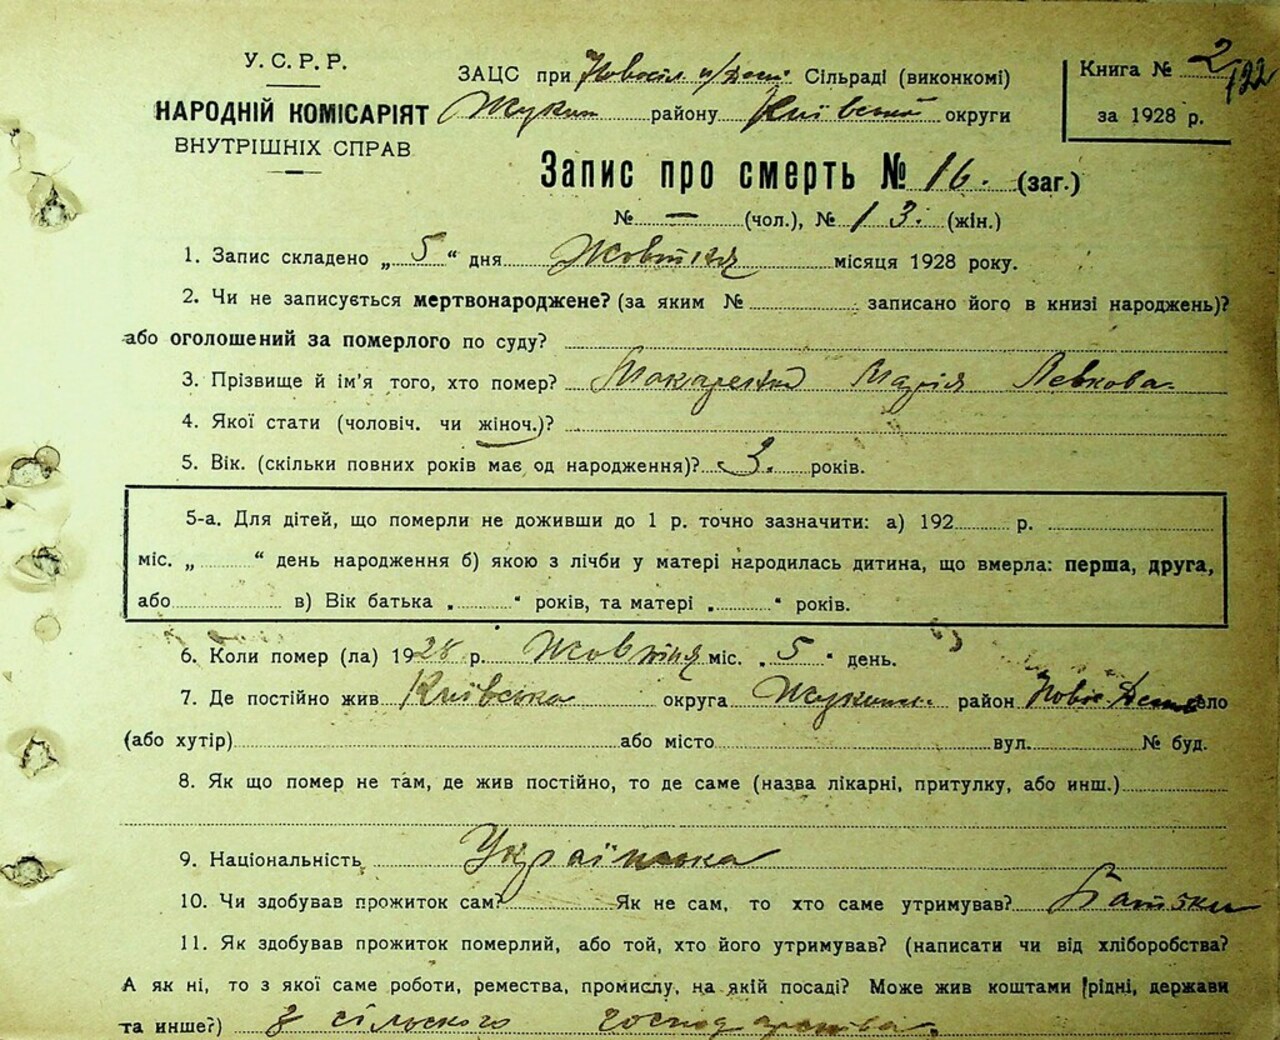 У. С. Р. Р.
НАРОДНІЙ КОМІСАРІЯТ
ВНУТРІШНІХ СПРАВ
ЗАЦС при Новосіл п/Десн. Сільраді (виконкомі)
Жукин района Київської округи
Книга № 2
за 1928 р.
Запис про смерть № 16. (заг.)
№ — (чол.), № 13. (жін.)
1. Запис складено „5“ дня Жовтня місяця 1928 року.
2. Чи не записується мертвонароджене? (за яким № записано його в книзі народжень)?
або оголошений за померлого по суду?
3. Прізвище й ім'я того, хто помер? Макаренко Марія Левкова.
4. Якої стати (чоловіч. чи жіноч.)?
5. Вік. (скільки повних років має од народження)? 3. років.
5-а. Для дітей, що померли не доживши до 1 р. точно зазначити: а) 192 р.
міс. „ “ день народження б) якою з лічби у матері народилась дитина, що вмерла: перша, друга,
або в) Вік батька „ “ років, та матері „ “ років.
6. Коли помер (ла) 1928 р. Жовтня міс. „5“ день.
7. Де постійно жив Київська округа Жукинс. район Новос. Десн село
(або хутір) або місто вул. № буд.
8. Як що помер не там, де жив постійно, то де саме (назва лікарні, притулку, або инш.)
9. Національність Українська
10. Чи здобував прожиток сам? Як не сам, то хто саме утримував? Батьки
11. Як здобував прожиток померлий, або той, хто його утримував? (написати чи від хліборобства?
А як ні, то з якої саме роботи, ремества, промислу, на якій посаді? Може жив коштами рідні, держави
та инше?) З сільского господарства.